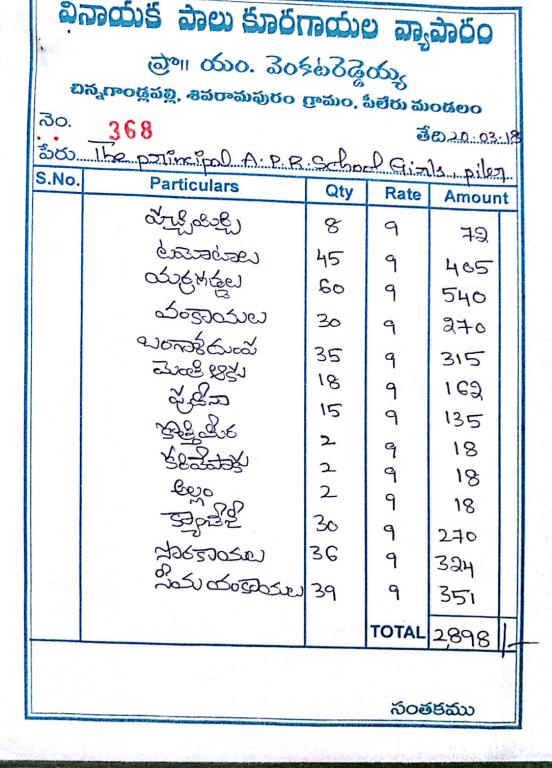 వినాయక పాలు కూరగాయల వ్యాపారం
ప్రొ॥ యం. వెంకటరెడ్డెయ్య
చిన్నగాండ్లపల్లి, శివరామపురం గ్రామం, పీలేరు మండలం
నెం. 368 తేది 20.03.18
పేరు The principal A.P.R. School Girls, piler
S.No. Particulars Qty Rate Amount
పచ్చిమిర్చి 8 9 72
టమోటాలు 45 9 405
యర్రగడ్డలు 60 9 540
వంకాయలు 30 9 270
బంగాళదుంప 35 9 315
మెంతి ఆకు 18 9 162
పుదీనా 15 9 135
కొత్తిమీర 2 9 18
కరివేపాకు 2 9 18
అల్లం 2 9 18
క్యాబేజీ 30 9 270
సొరకాయలు 36 9 324
సీమ వంకాయలు 39 9 351
TOTAL 2898/-
సంతకము